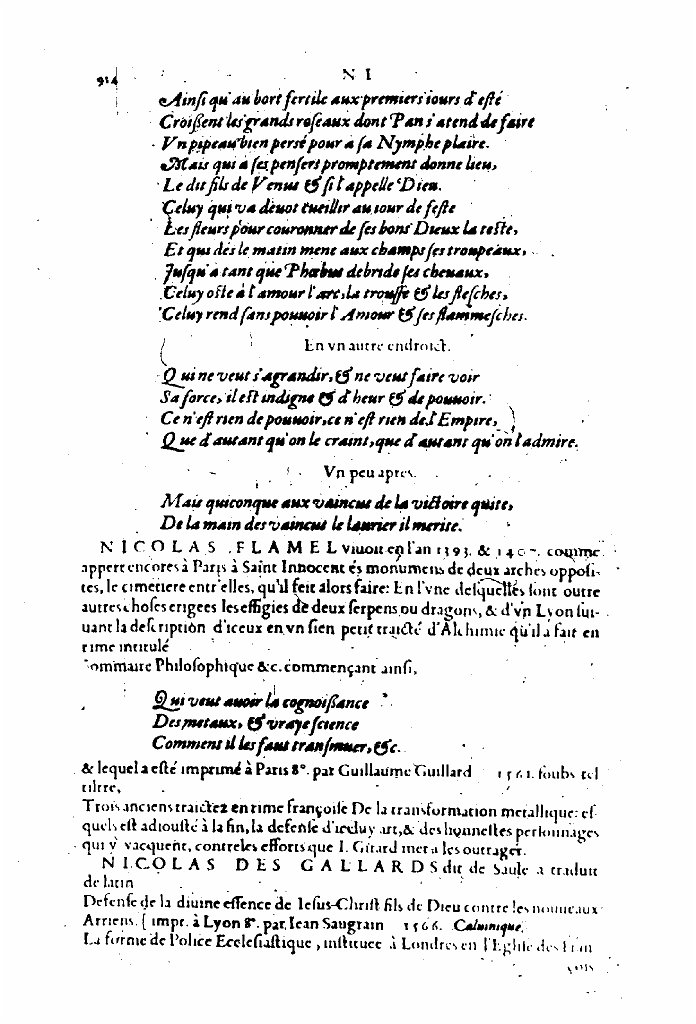 914
N I
Ainſi qu'au bort fertile aux premiers iours d'eſté
Croiſſent les grands roſeaux dont Pan s'atend de faire
Vn pipeau bien persé pour à ſa Nymphe plaire.
Mais qui à ſes penſers promptement donne lieu,
Le dit fils de Venus & ſi l'appelle Dieu.
Celuy qui va deuot cueillir au iour de feſte
Les fleurs pour couronner de ſes bons Dieux la teſte,
Et qui dés le matin mene aux champs ſes troupeaux,
Juſqu'à tant que Phœbus debride ſes cheuaux,
Celuy oſte à l'amour l'arc, la trouſſe & les fleſches,
Celuy rend ſans pouuoir l'Amour & ſes flammeſches.
En vn autre endroict.
Qui ne veut s'agrandir, & ne veut faire voir
Sa force, il eſt indigne & d'heur & de pouuoir.
Ce n'eſt rien de pouuoir, ce n'eſt rien de l'Empire,
Que d'autant qu'on le craint, que d'autant qu'on l'admire.
Vn peu apres.
Mais quiconque aux vaincus de la victoire quite,
De la main des vaincus le laurier il merite.
NICOLAS FLAMEL viuoit en l'an 1393. & comme
appert encores à Paris à Saint Innocent és monumens de deux arches oppoſi-
tes, le cimetiere entr'elles, qu'il feit alors faire: En l'vne deſquelles ſont outre
autres choſes erigees les effigies de deux ſerpens ou dragons, & d'vn Lyon ſui-
uant la deſcription d'iceux en vn ſien petit traicté d'Alchimie qu'il a fait en
rime intitulé
Sommaire Philoſophique &c. commençant ainſi,
Qui veut auoir la cognoiſſance
Des metaux, & vraye ſcience
Comment il les faut tranſmuer, &c.
& lequel a eſté imprimé à Paris 8°. par Guillaume Guillard 1561. ſoubs tel
tiltre,
Trois anciens traictez en rime françoiſe De la transformation metallique: eſ-
quels eſt adiouſté à la fin, la defenſe d'iceluy art, & des honneſtes perſonnages
qui y vacquent, contre les efforts que I. Girard met a les outrager.
NICOLAS DES GALLARDS dit de Saule a traduit
de latin
Defenſe de la diuine eſſence de Ieſus-Chriſt fils de Dieu contre les nouueaux
Arriens. [impr. à Lyon 8°. par Iean Saugrain 1566. Caluinique.
La forme de Police Eccleſiaſtique, inſtituee à Londres en l'Egliſe des Fran
çois